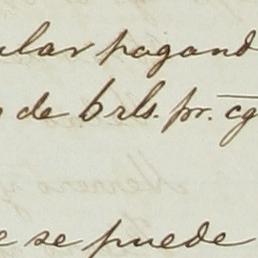 ular pagand
de 6 rls. pr. cg
e se puede